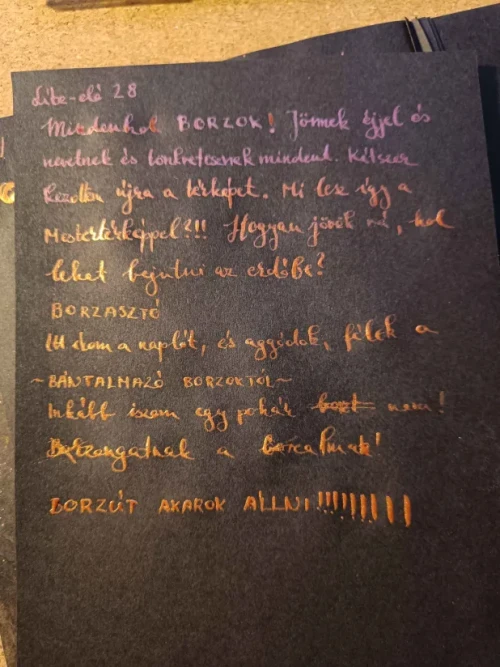 Libe-elő 28
Mindenhol BORZOK! Jönnek éjjel és
nevetnek és tönkretesznek mindent. Kétszer
kezdtem újra a térképet. Mi lesz így a
Mestertérképpel?!!! Hogyan jövök rá, hol
lehet bejutni az erdőbe?
BORZASZTÓ
Itt a naplót, és aggódok, félek a
~BÁNTALMAZÓ BORZOKTÓL~
Inkább iszom egy pohár bort nem!
a borzalmak!
BORZÚT AKAROK ÁLLNI!!!!!!!!!!